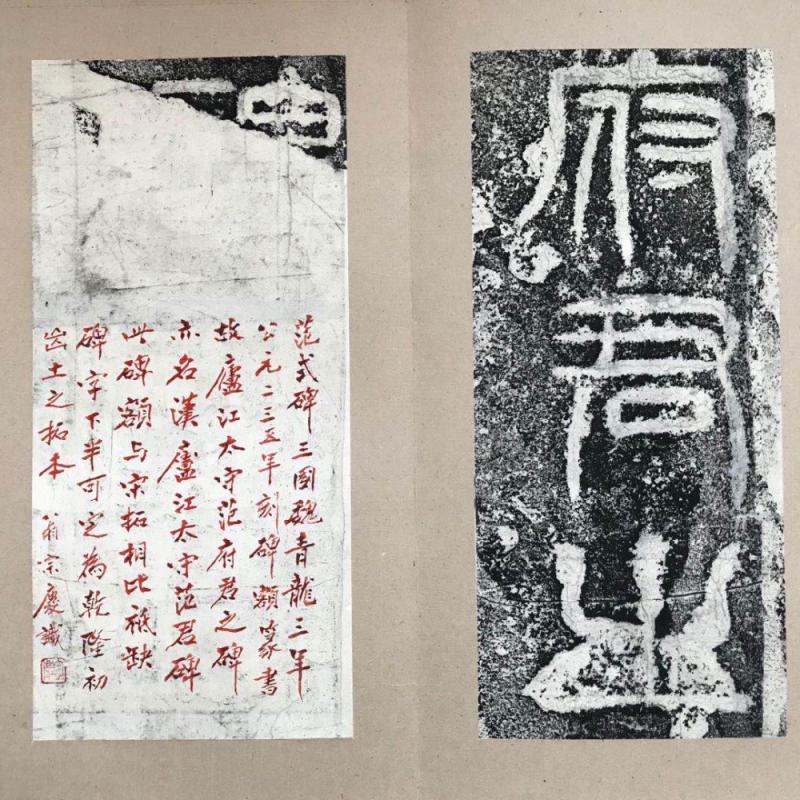 府君之
范式碑三國魏青龍三年
公元二三五年刻碑額篆書
故廬江太守范府君之碑
亦名漢廬江太守范君碑
此碑額与宋拓相比祗缺
碑字下半可定為乾隆初
出土之拓本 翁宗慶識